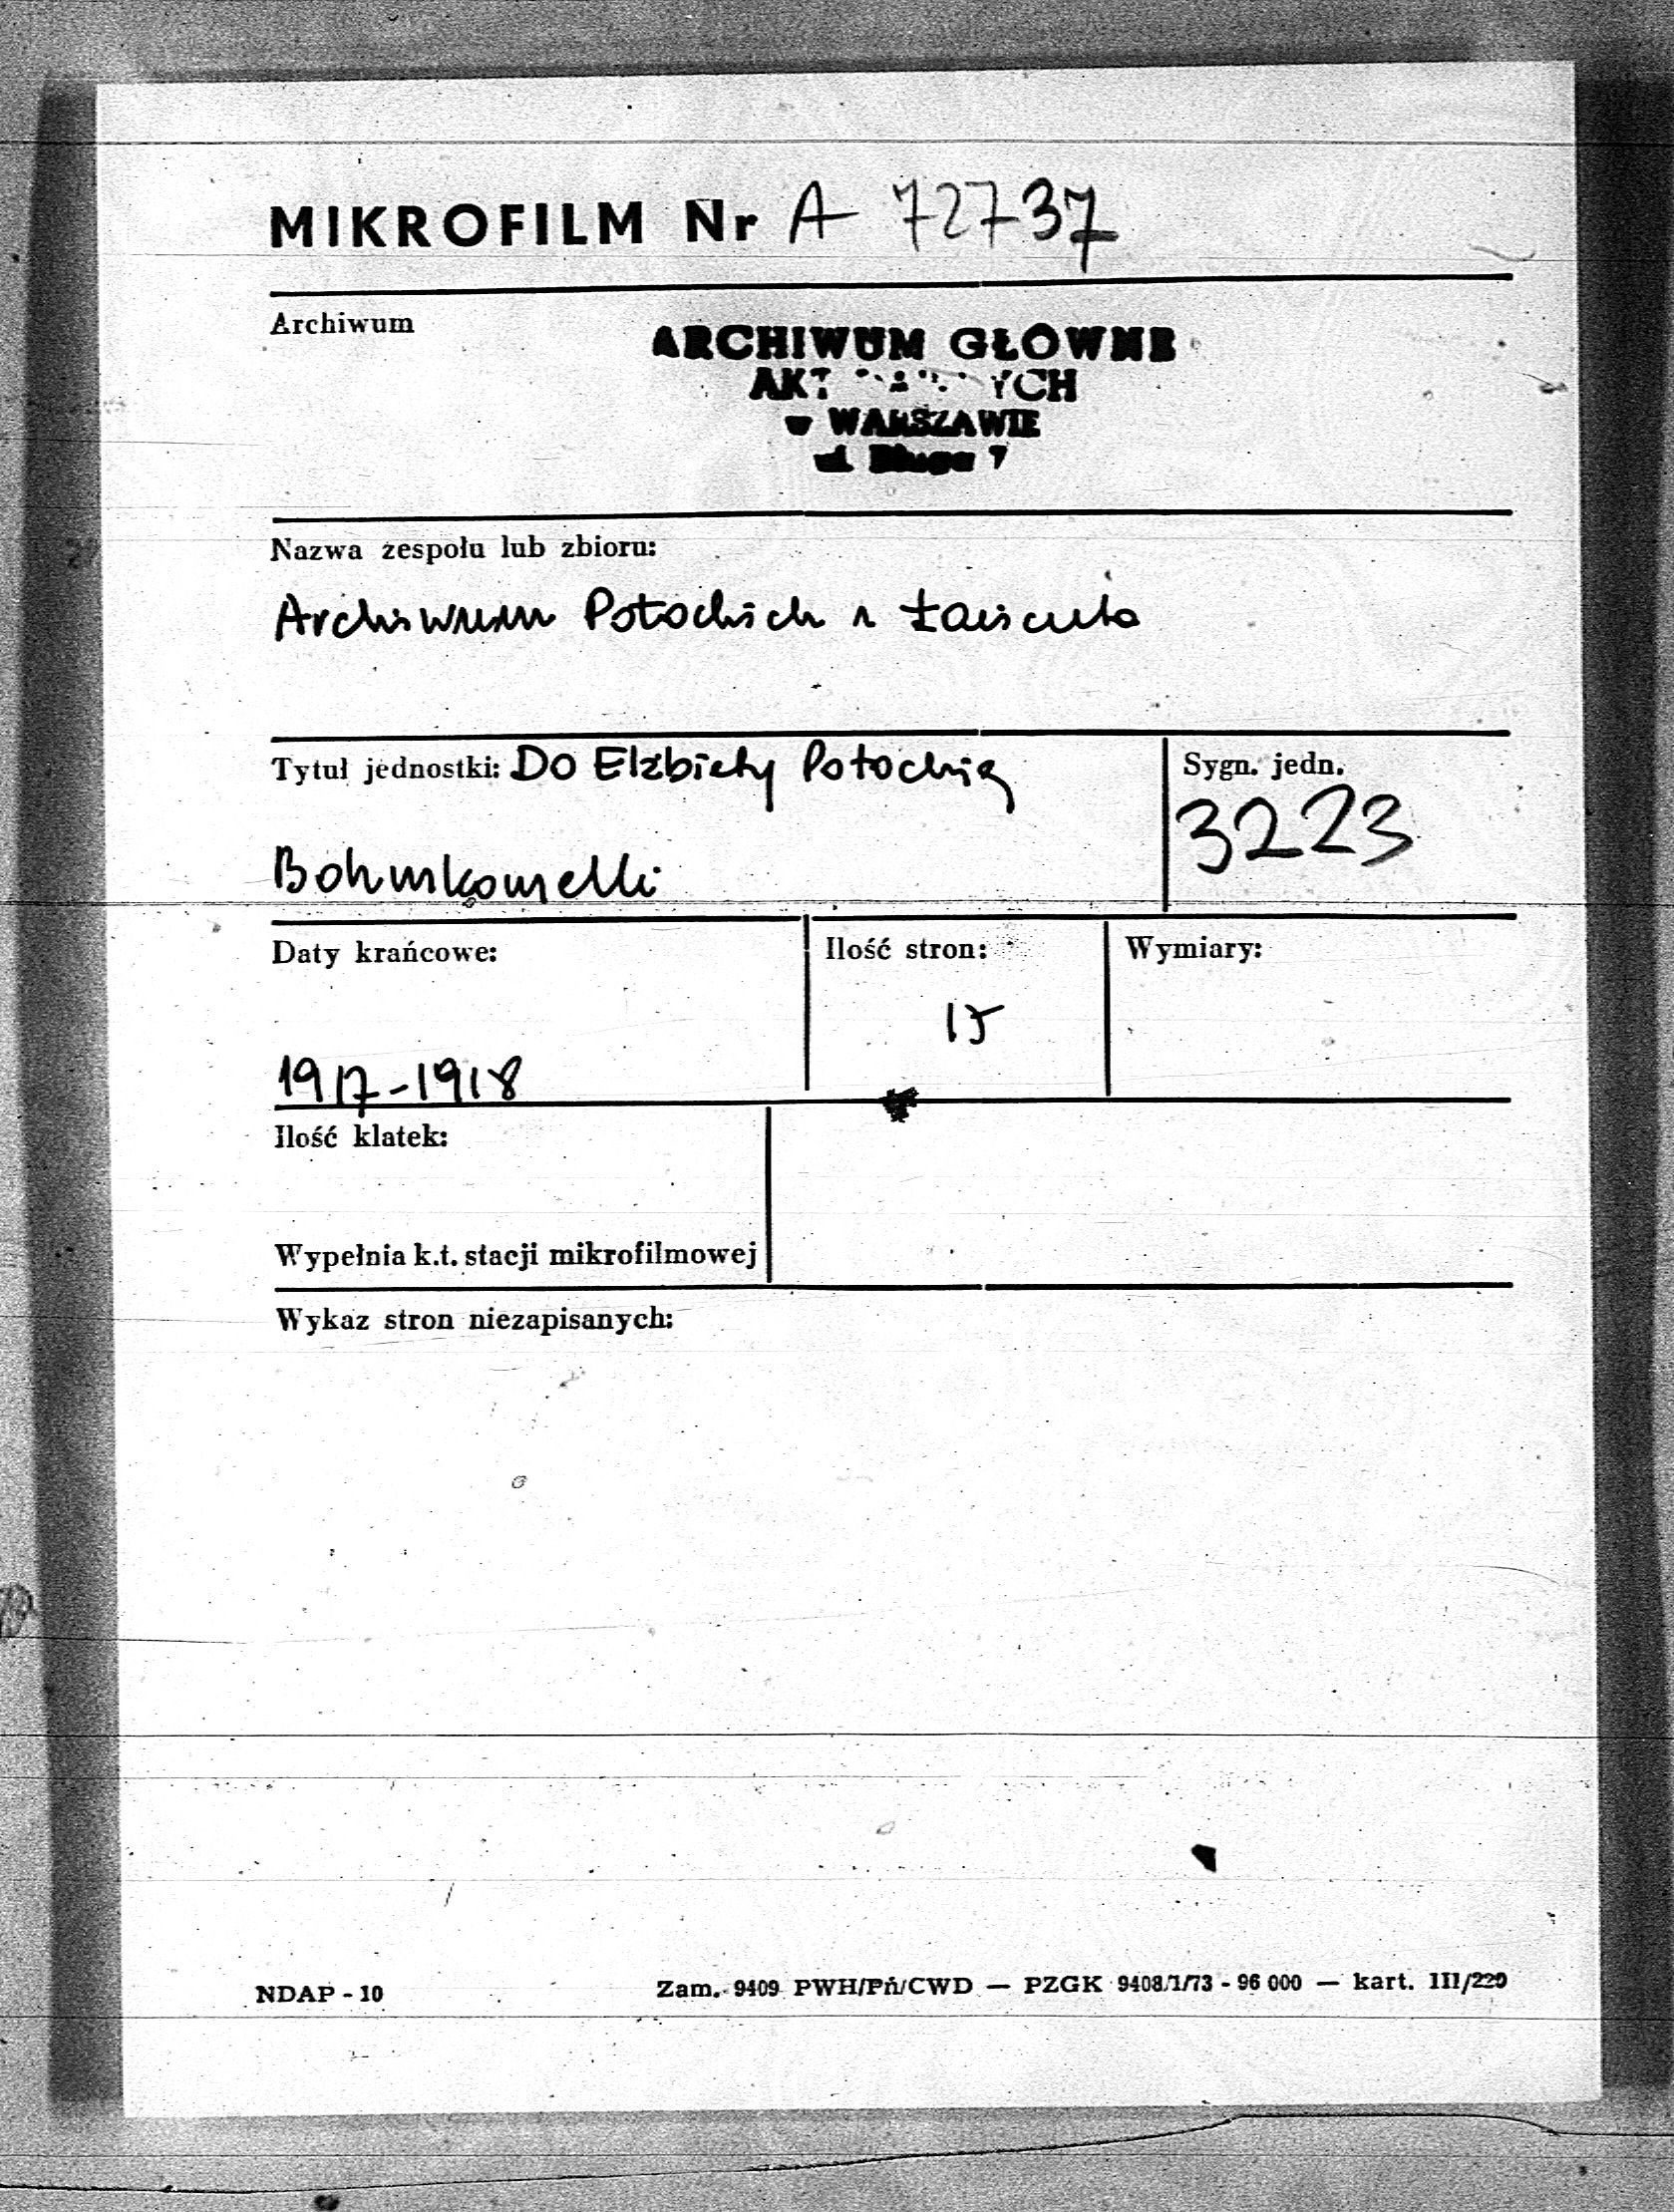 MIKROFILM Nr A 72737
Archiwum
ARCHIWUM GŁÓWNE
AKT YCH
w WARSZAWIE
ul. Długa 7
Nazwa zespołu lub zbioru:
Archiwum Potockich z Łańcuta
Tytuł jednostki: Do Elżbiety Potockiej
Sygn. jedn.
3223
Daty krańcowe:
Ilość stron:
Wymiary:
15
1917-1918
Ilość klatek:
Wypełnia k.t. stacji mikrofilmowej
Wykaz stron niezapisanych:
NDAP - 10
Zam. 9409 PWH/Pń/CWD — PZGK 9408/1/73 - 96 000 — kart. III/220